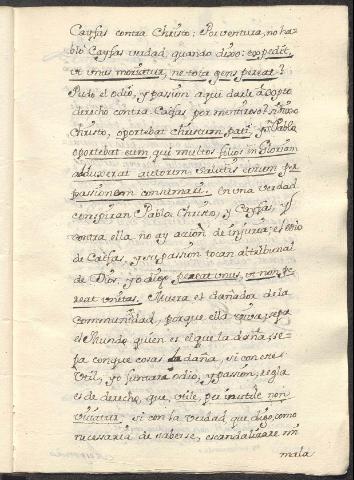 Cayfas contra Christo: Por ventura, no ha-
bló Cayfas verdad, quando dixo: expedit,
ut unus moriatur, ne tota gens pereat?
Pudo el odio, y passion aqui darle
derecho contra Caifas por mentiroso?
Christo, oportebat christum pati, y Pablo
oportebat eum, qui multos filios in gloriam
adduxerat autorem salutis eorum per
passionem consumari. En una verdad
conspiran Pablo, Christo, y Cayfas, y
contra ella no ay accion de injuria; el odio
de Caifas, y su passion tocan al tribunal
de Dios. yo digo, pereat unus, ut non pe-
reat unitas. Muera el dañador de la
communidad, porque ella viva, sepa
el Mundo quien es el que la daña, se-
pa con que cosas la daña, si con este
util, yo juntara odio, y passion, regla
es de derecho, que, utile, per inutile non
vitiatur; si con la verdad, que digo, como
necessaria de saberse, escandalizare mi
mala